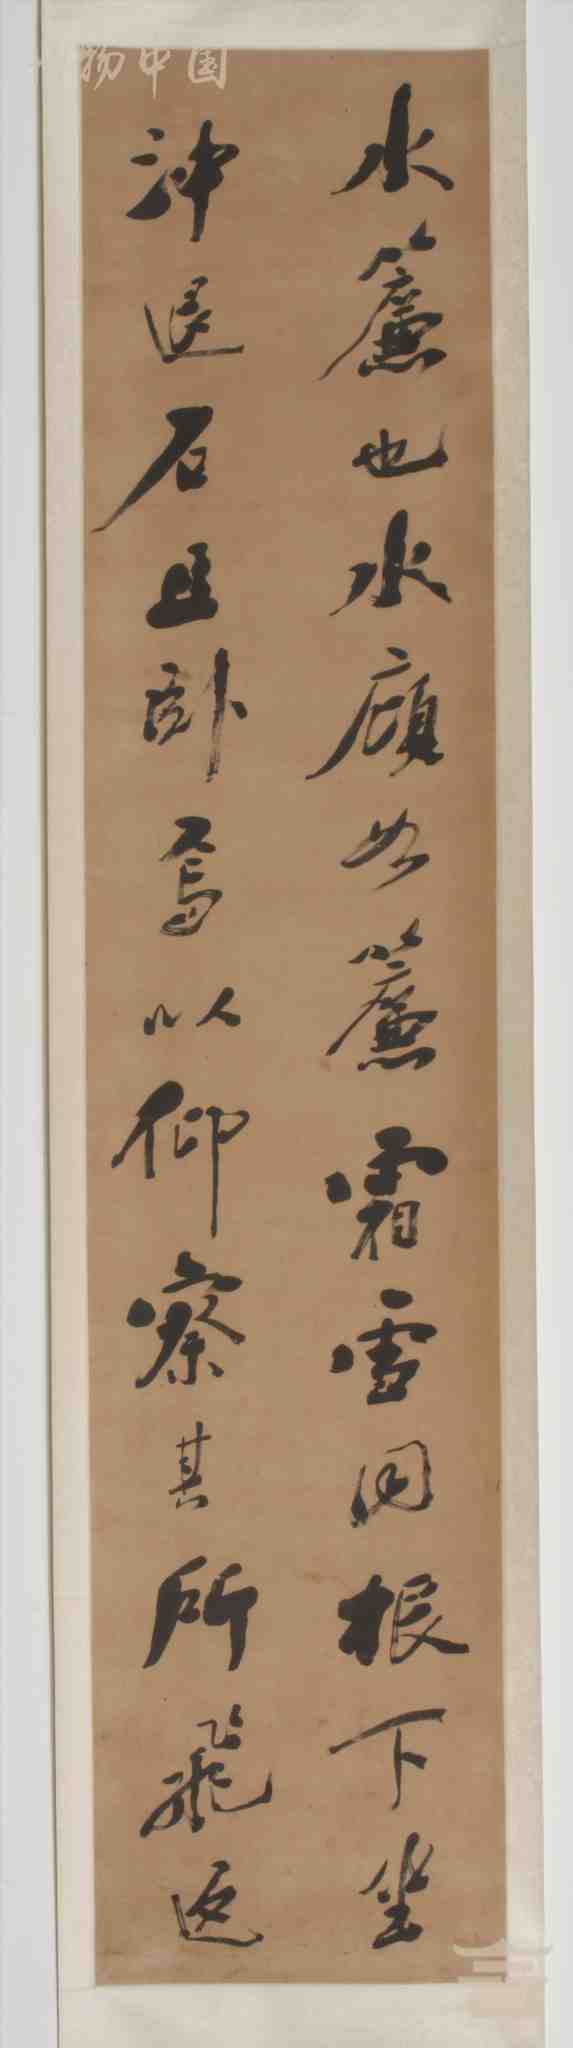 物中国
水簾也水顧如簾霜雪同根下坐
沖退石且卧焉以仰察其所飛返